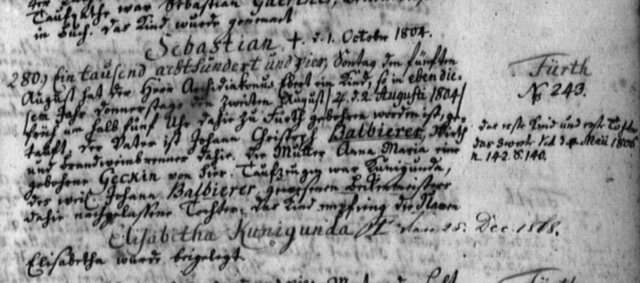 Taufzeuge war Sebastian
in Buch. Das Kind wurde genennt
Sebastian † d. 1. October 1804.
280) Ein tausend achthundert und vier, Sontag den fünften
August hat der Herr Archidiakonus Ebert ein Kind, so in eben die=
sem Jahr Donnerstags den zweiten August /: d. 2. Augusti 1804 :/
früh um halb fünf Uhr dahir zu Fürth gebohren worden ist, ge=
tauft. Der Vater ist Johann Christoph Balbierer, Wirth
und Brandweinbrenner dahir. Die Mutter Anna Maria eine
gebohrne Geckin von hier. Taufzeugin war Kunigunda,
des weil. Johann Balbierer, gewesenen Beckenmeisters
dahir nachgelassene Tochter. Das Kind empfing die Namen
Elisabetha Kunigunda † den 25. Dec. 1868.
Elisabetha wurde beigelegt.
Fürth
N. 243.
das erste Kind und erste Tochter
das zweite Mai 1806
n. 142. S. 140.
Fürth